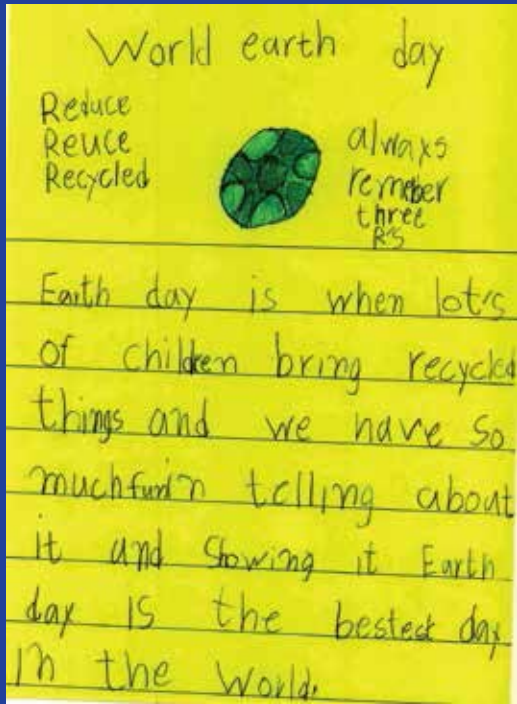 World earth day
Reduce
Reuce
Recycled
always
remeber
three
R'S
Earth day is when lot's
of children bring recycled
things and we have so
much fun'n telling about
it and showing it Earth
day is the bestest day
in the World.